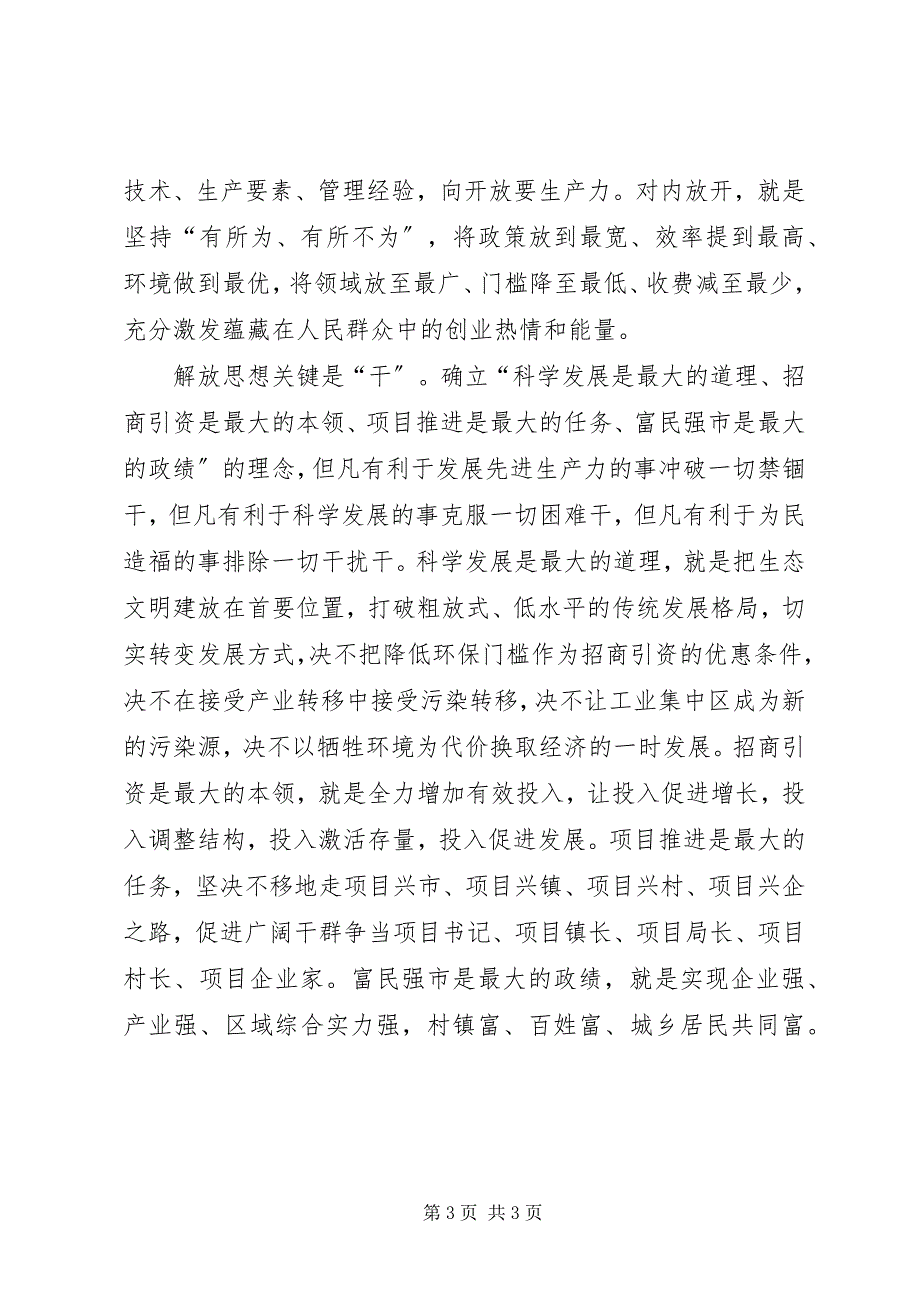 技术、生产要素、管理经验，向开放要生产力。对内放开，就是
坚持“有所为、有所不为〞，将政策放到最宽、效率提到最高、
环境做到最优，将领域放至最广、门槛降至最低、收费减至最少，
充分激发蕴藏在人民群众中的创业热情和能量。
解放思想关键是“干〞。确立“科学发展是最大的道理、招
商引资是最大的本领、项目推进是最大的任务、富民强市是最大
的政绩〞的理念，但凡有利于发展先进生产力的事冲破一切禁锢
干，但凡有利于科学发展的事克服一切困难干，但凡有利于为民
造福的事排除一切干扰干。科学发展是最大的道理，就是把生态
文明建放在首要位置，打破粗放式、低水平的传统发展格局，切
实转变发展方式，决不把降低环保门槛作为招商引资的优惠条件，
决不在接受产业转移中接受污染转移，决不让工业集中区成为新
的污染源，决不以牺牲环境为代价换取经济的一时发展。招商引
资是最大的本领，就是全力增加有效投入，让投入促进增长，投
入调整结构，投入激活存量，投入促进发展。项目推进是最大的
任务，坚决不移地走项目兴市、项目兴镇、项目兴村、项目兴企
之路，促进广阔干群争当项目书记、项目镇长、项目局长、项目
村长、项目企业家。富民强市是最大的政绩，就是实现企业强、
产业强、区域综合实力强，村镇富、百姓富、城乡居民共同富。
第 3 页 共 3 页